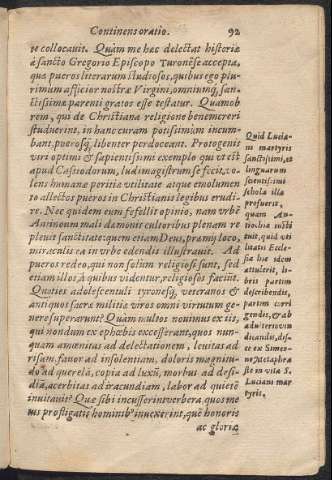 Continens oratio. 92
re collocauit. Quàm me hæc delectat historia
à sancto Gregorio Episcopo Turonēse accepta,
qua pueros literarum studiosos, quibus ego plu-
rimum afficior nostræ Virgini, omniumq̃, san-
ctissimæ parenti gratos esse testatur. Quamob
rem, qui de Christiana religione benemereri
studuerint, in hanc curam potissimùm incum-
bant, puerosq̃, libenter perdoceant. Protogenis
viri optimi & sapientissimi exemplo qui vt est
apud Cassiodorum, ludimagistrum se fecit, vo-
lens humanæ peritiæ vtilitate atque emolumen
to allectos pueros in Christianis legibus erudi-
re. Nec quidem eum fefellit opinio, nam vrbē
Antinoum mali dæmonis cultoribus plenam re
pleuit sanctitate: quem etiam Deus, præmij loco,
miraculis ea in vrbe edendis illustrauit. Ad
pueros redeo, qui non solùm religiosi sunt, sed
etiam illos, à quibus videntur, religiosos faciūt.
Quoties adolescentuli tyronesq̃, veteranos &
antiquos sacræ militiæ viros omni virtutum ge-
nere superarunt? Quàm multos nouimus ex iis,
qui nondum ex ephœbis excesserant, quos nun-
quam amœnitas ad delectationem, leuitas ad
risum, fauor ad insolentiam, doloris magnitu-
do ad querelā, copia ad luxū, morbus ad desi-
diā, acerbitas ad iracundiam, labor ad quietē
inuitauit? Quæ sibi incusserint verbera, quos me
tus prostigatis hominibꝰ inuexerint, quē honoris
ac gloriæ
Quid Lucia-
ni martyris
sanctissimi, et
linguarum
scientissimi
schola illa
profuerit,
quam An-
tiochiæ insti
tuit, quid vti
litatis Eccle-
siæ hic idem
attulerit, li-
bris partim
describendis,
partim corri
gendis, & ab
adulteriis vin
dicandis, dis-
ce ex Simeo-
ne Metaphra
ste in vita S.
Luciani mar
tyris.